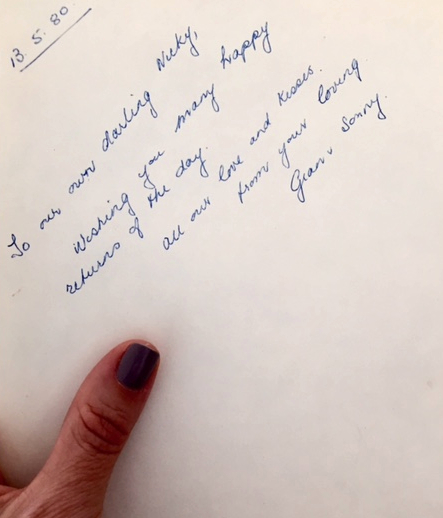 13.5.80
To our own darling Nicky,
Wishing you many happy
returns of the day.
All our love and kisses.
from your loving
Gran & Sonny.